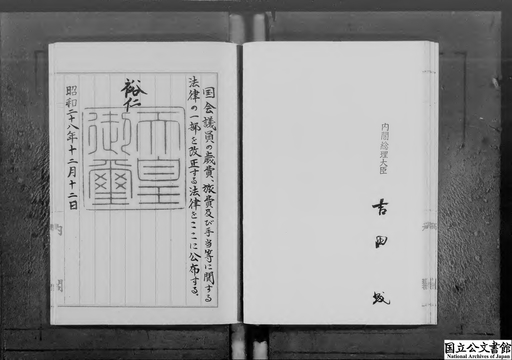 国会議員の歳費、旅費及び手当等に関する
法律の一部を改正する法律をここに公布する。
裕仁
天皇
御璽
昭和二十八年十二月十二日
内閣総理大臣
吉田茂
国立公文書館
National Archives of Japan